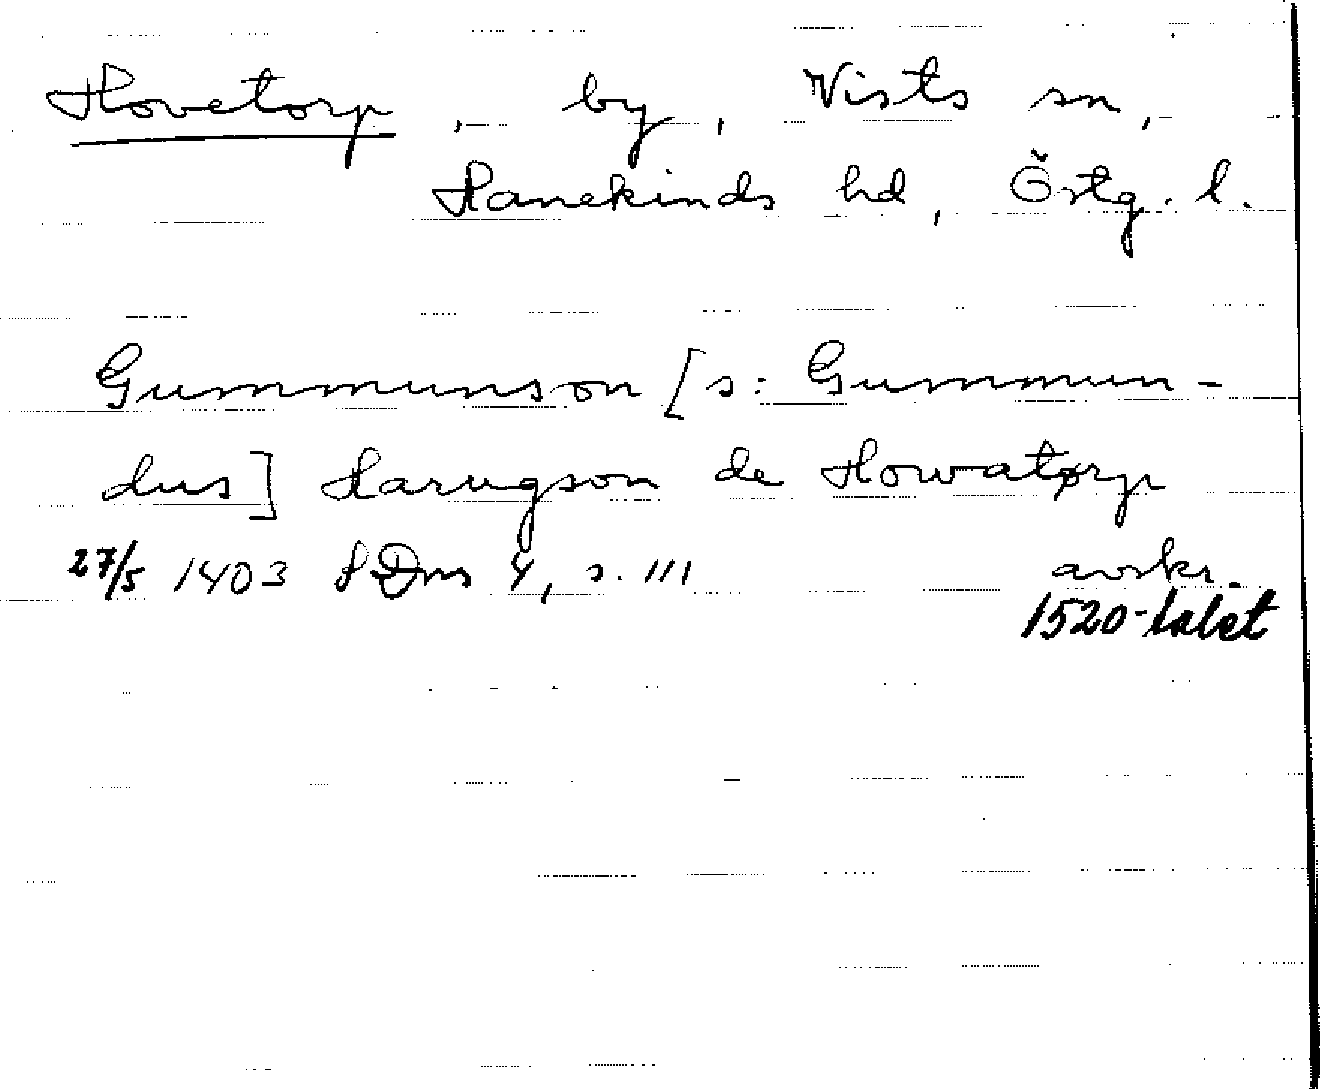 Hovetorp, by, Vists sn,
Hanekinds hd, Östg. l.
Gummunson [s: Gummun-
dus] Harugson de Howatorp
27/5 1403 SDns 4, s. 111 avskr.
1520-talet